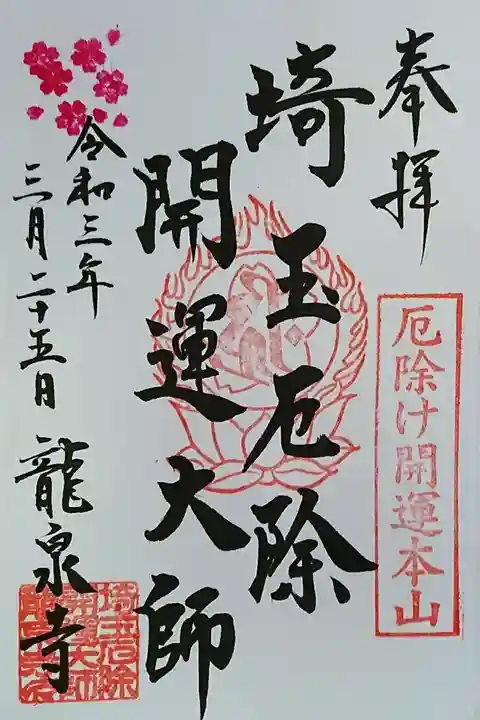 奉拝
厄除け開運本山
埼玉厄除
開運大師
令和三年
三月二十五日
龍泉寺
埼玉厄除
開運大師